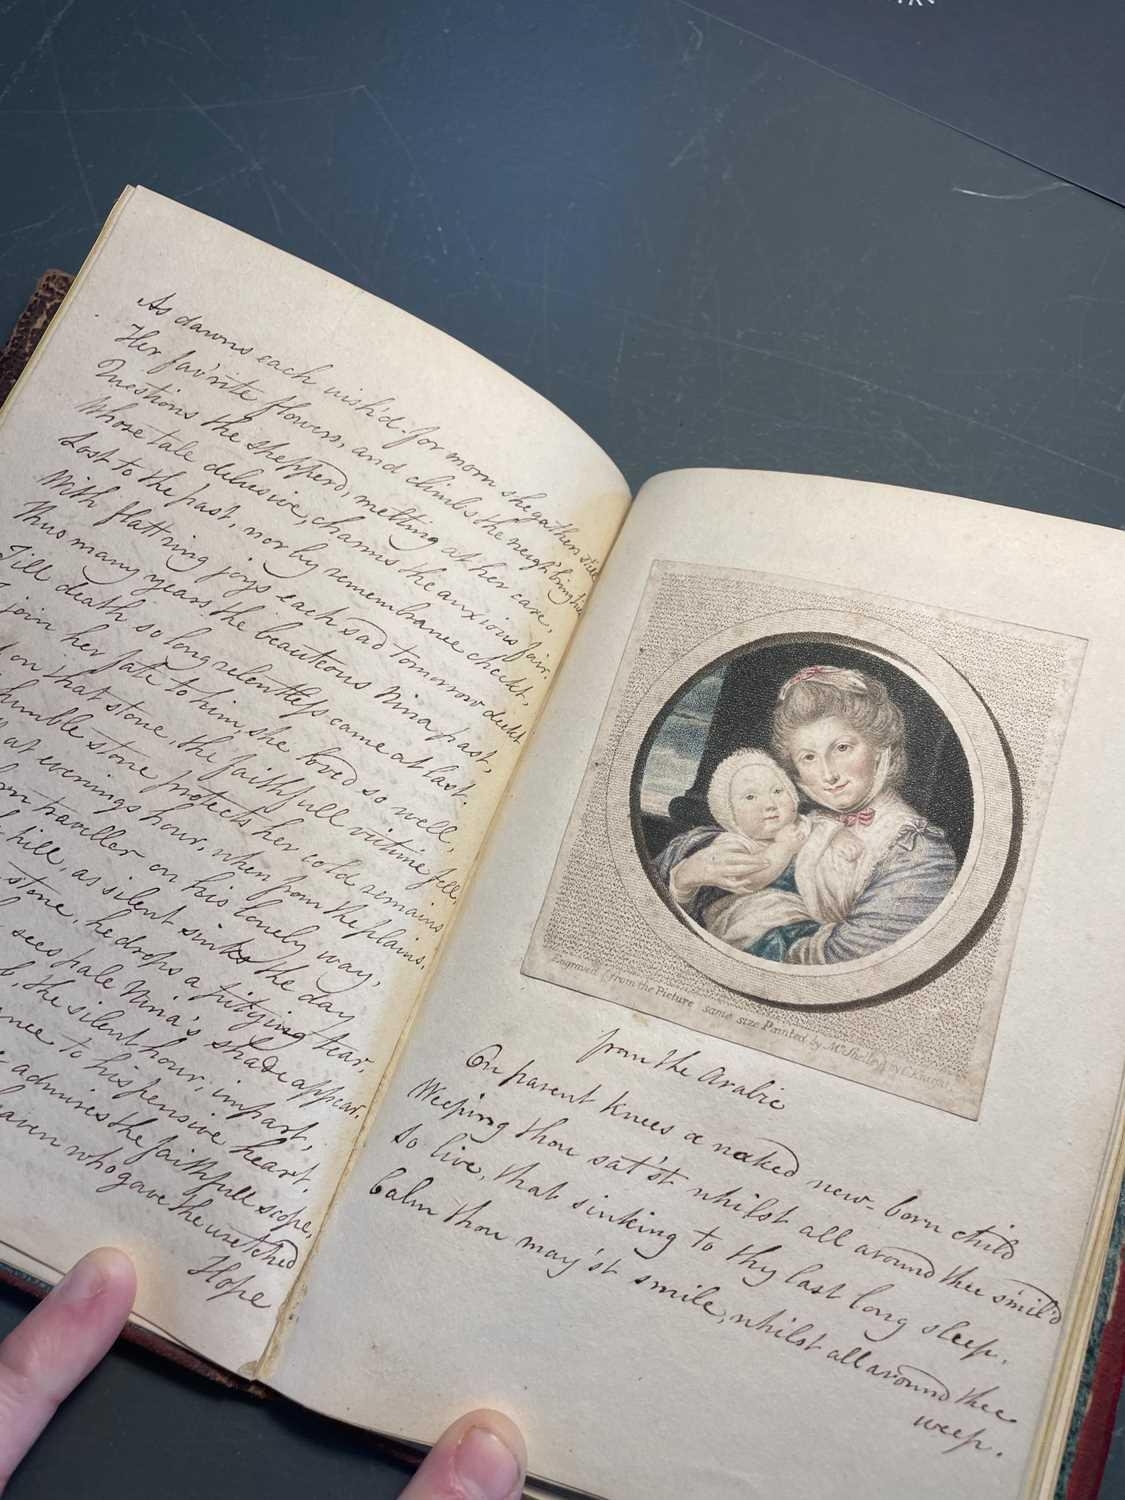 As dawns each wish'd-for morn she gathers still
Her fav'rite flowers, and climbs the neigh'bring hill
Questions the shepherd, melting at her care,
Whose tale delusive, charms the anxious fair.
Lost to the past, nor by remembrance checkt,
With flatt'ring joys each sad tomorrow deckt
Thus many years the beauteous Nina past,
Till death so long relentless came at last.
join her fate to him she loved so well,
on that stone, the faithfull victime fell,
humble stone protects her cold remains
at evenings hour, when from the plains,
traveller on his lonely way,
hill, as silent sinks the day
stone, he drops a pitying tear,
sees pale Nina's shade appear,
the silent hour, impart,
to his pensive heart,
admires the faithfull scope,
who gave the wretched
Hope
Engraved from the Picture same size Painted by Mrs Shelly, by C. Knight
from the Arabic
On parent knees a naked new-born child
Weeping thou sat'st whilst all around thee smil'd
So live, that sinking to thy last long sleep.
Calm thou may'st smile, whilst all around thee
weep.